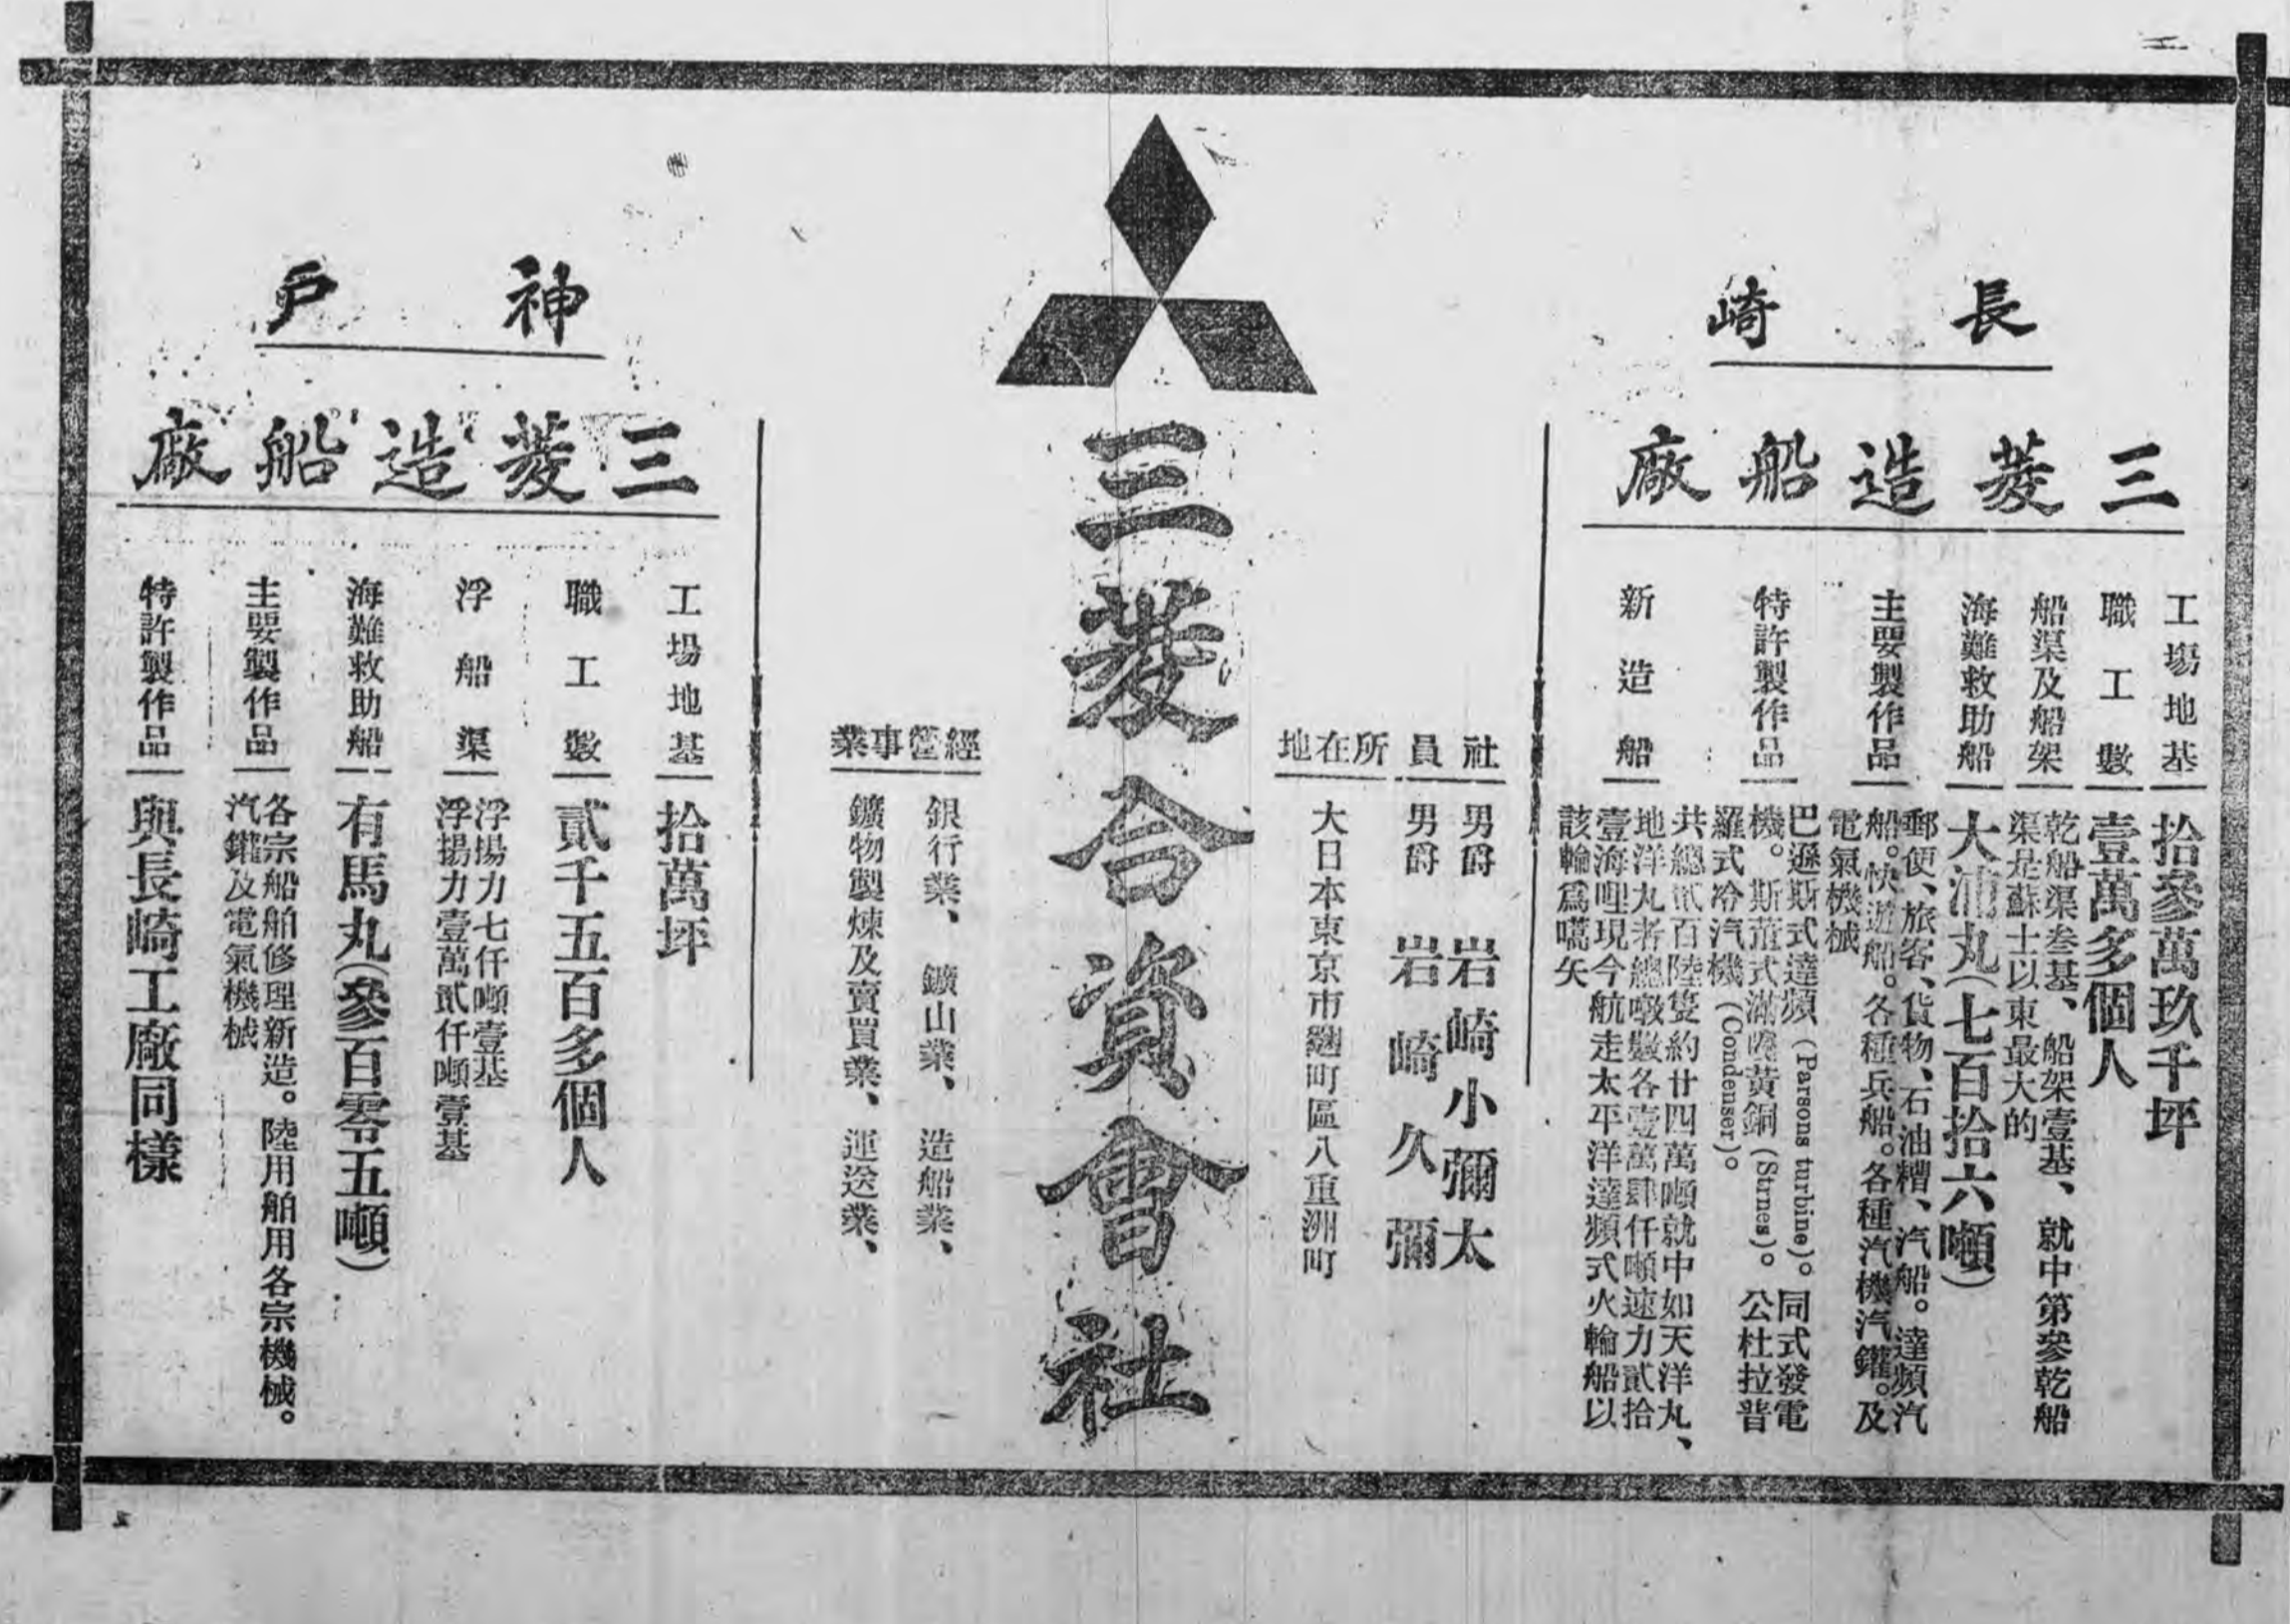 長崎
三菱造船廠
工場地基
拾參萬玖千坪
職工數
壹萬多個人
船渠及船架
乾船渠叁基、船架壹基、就中第參乾船
渠是蘇士以東最大的
海難救助船
大浦丸(七百拾六噸)
主要製作品
郵便、旅客、貨物、石油糟、汽船。達頻汽
船。快遊船。各種兵船。各種汽機汽鑵。及
電氣機械
特許製作品
巴遜斯式達頻 (Parsons turbine)。同式發電
機。斯 式滿 黃銅 (Strnes)。公杜拉普
羅式冷汽機 (Condenser)。
新造船
共總貳百陸隻約廿四萬噸就中如天洋丸、
地洋丸者總噸數各壹萬肆仟噸速力貳拾
壹海哩現今航走太平洋達頻式火輪船以
該輪爲嚆矢
三菱合資會社
社員
男爵 岩崎小彌太
男爵 岩崎久彌
所在地
大日本東京市麴町區八重洲町
經營事業
銀行業、鑛山業、造船業、
鑛物製煉及賣買業、運送業、
神戶
三菱造船廠
工場地基
拾萬坪
職工數
貳千五百多個人
浮船渠
浮揚力七仟噸壹基
浮揚力壹萬貳仟噸壹基
海難救助船
有馬丸(參百零五噸)
主要製作品
各宗船舶修理新造。陸用舶用各宗機械。
汽鑵及電氣機械
特許製作品
與長崎工廠同樣